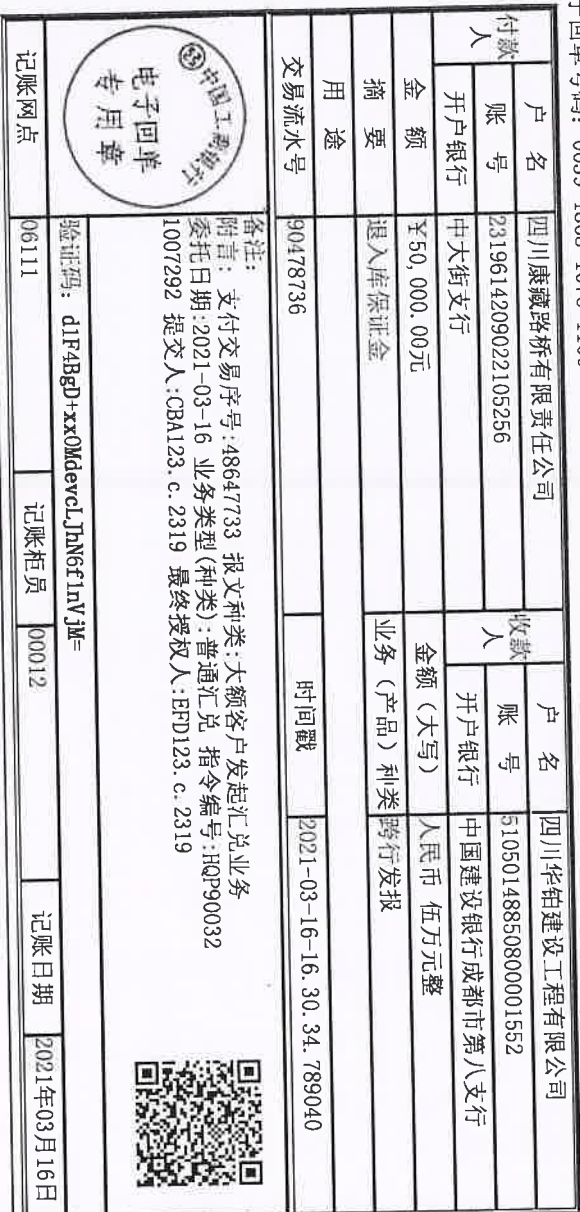 付款人 户 名 四川康藏路桥有限责任公司 收款人 户 名 四川华铂建设工程有限公司
账 号 2319614209022105256 账 号 51050148850800001552
开户银行 中大街支行 开户银行 中国建设银行成都市第八支行
金 额 ¥50,000.00元 金额（大写） 人民币 伍万元整
摘 要 退入库保证金 业务（产品）种类 跨行发报
用 途
交易流水号 90478736 时间戳 2021-03-16-16.30.34.789040
中国工商银行
电子回单
专用章
备注：
附言： 支付交易序号:48647733 报文种类:大额客户发起汇兑业务
委托日期:2021-03-16 业务类型(种类):普通汇兑 指令编号:HQP90032
1007292 提交人:CBA123.c.2319 最终授权人:EFD123.c.2319
验证码: d1F4BgD+xx0MdevcLJhN6f1nVjM=
记账网点 06111 记账柜员 00012 记账日期 2021年03月16日